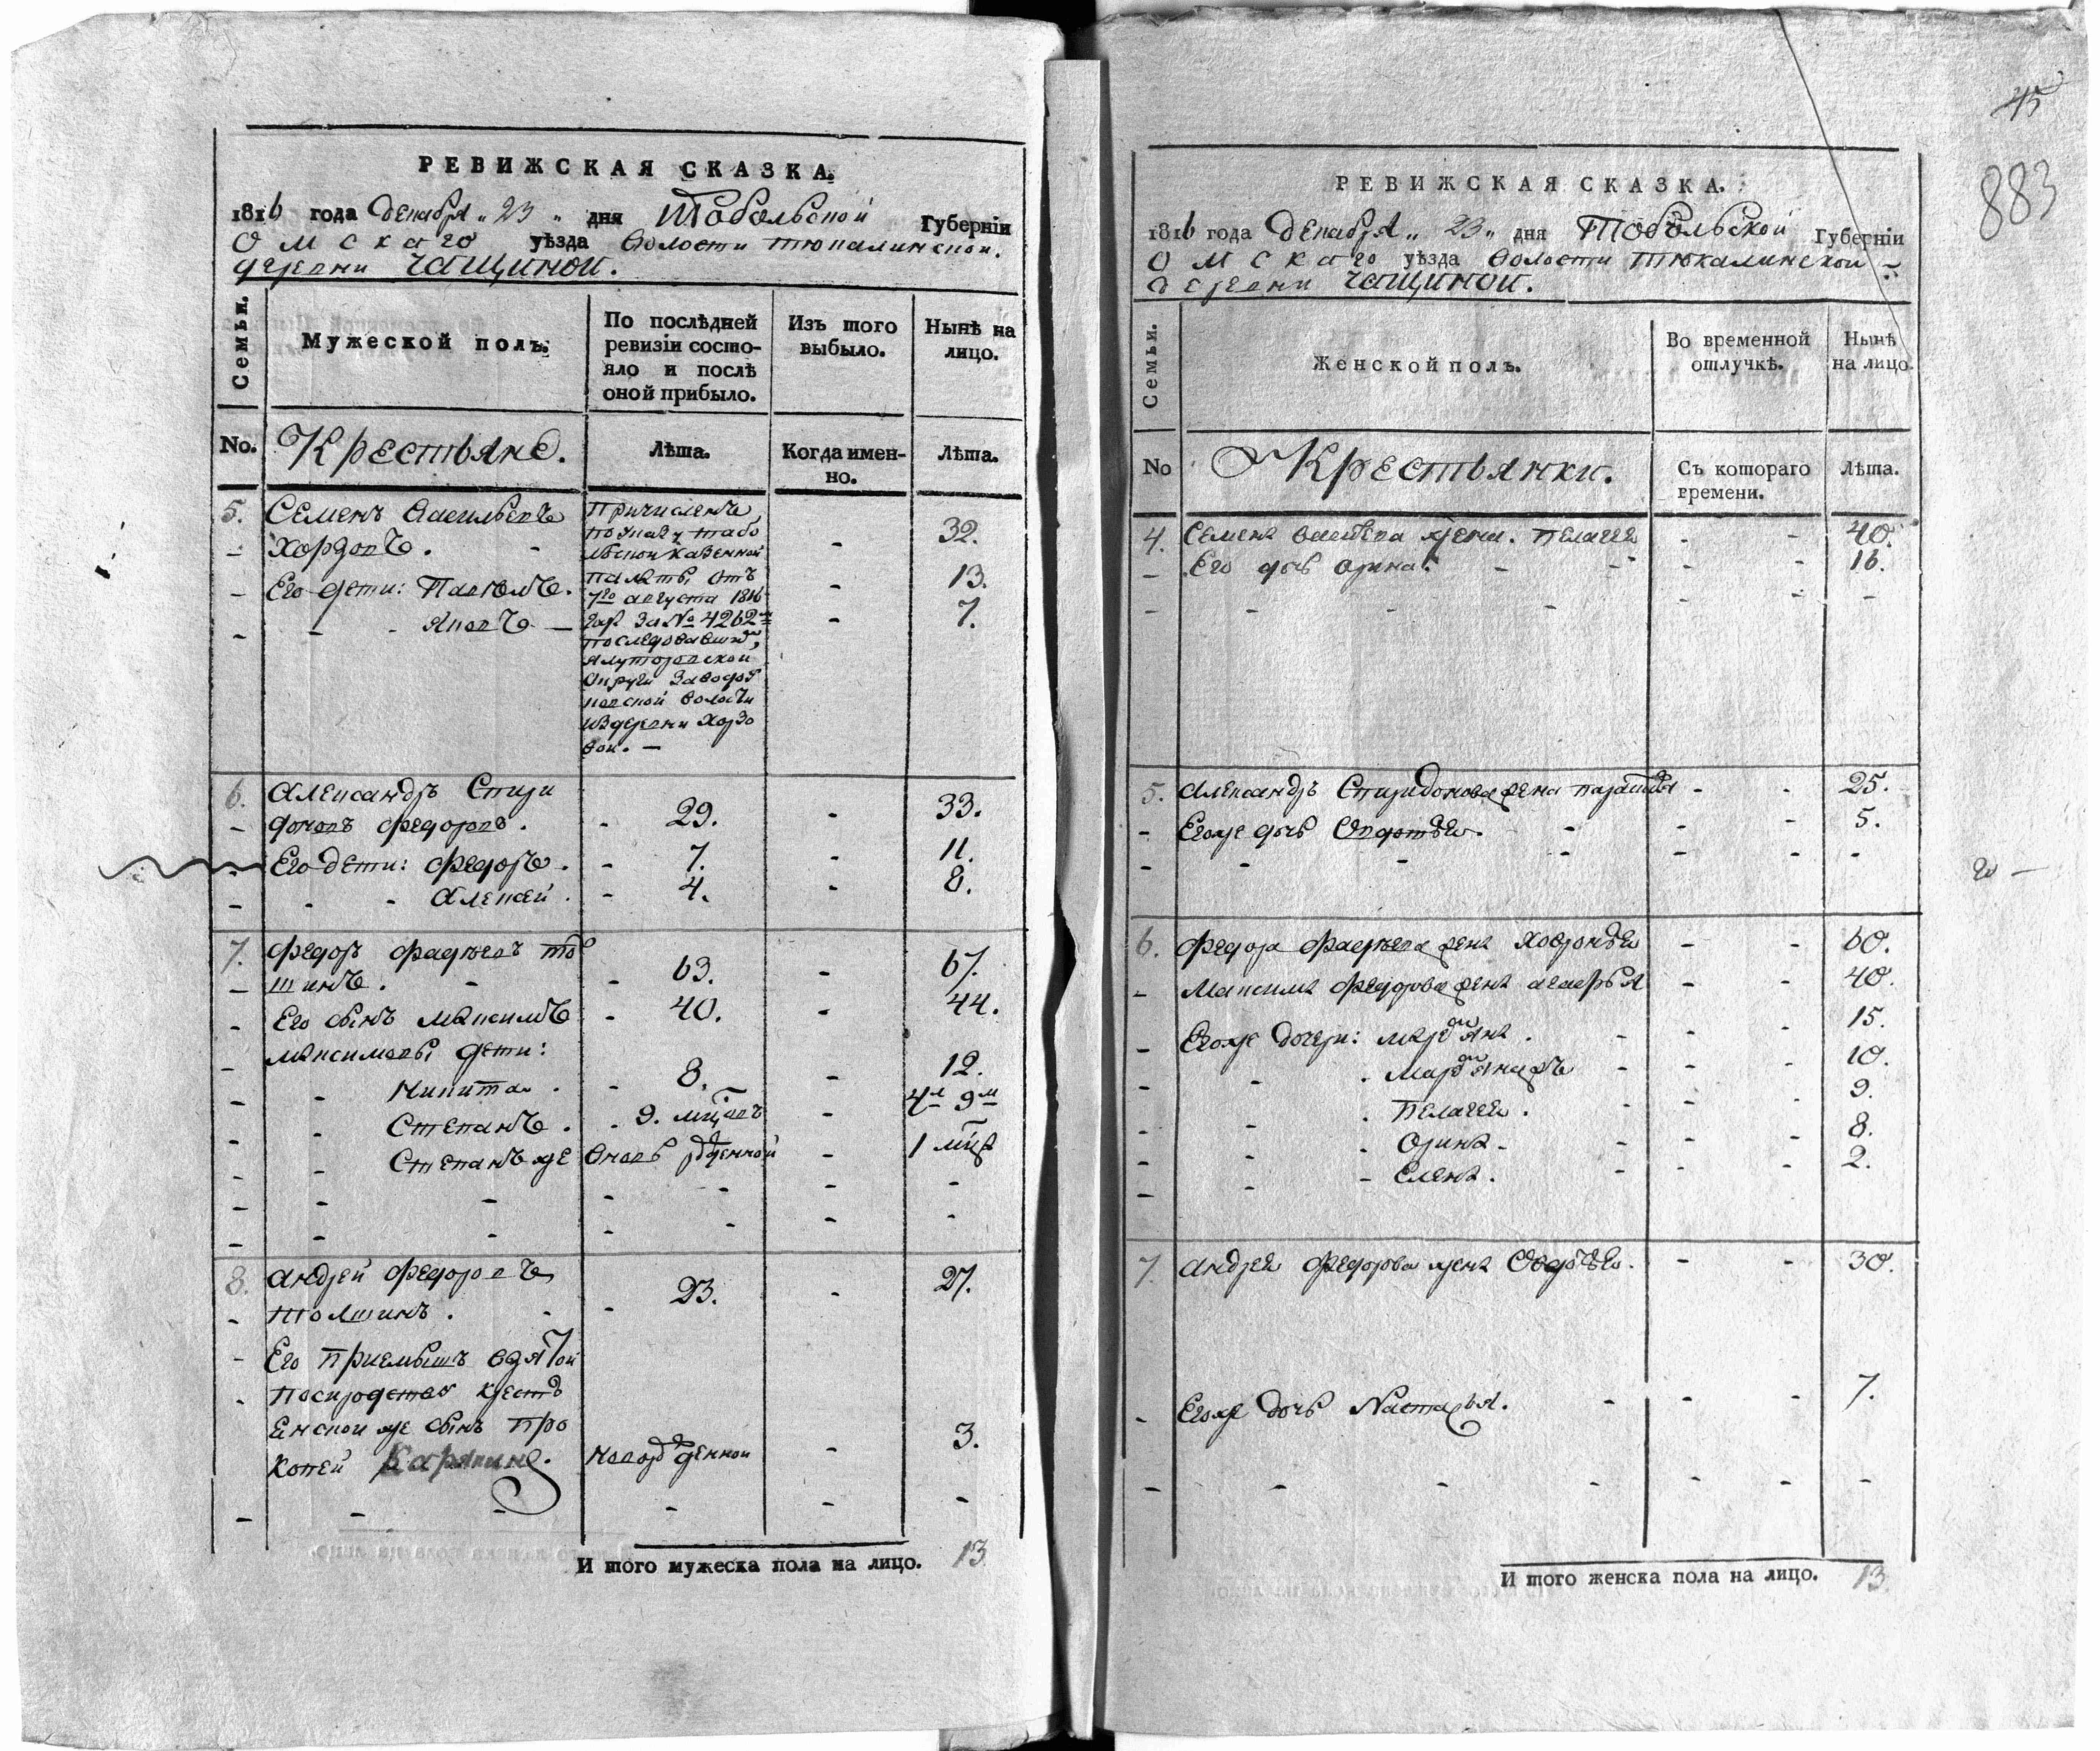 РЕВИЖСКАЯ СКАЗКА.
1816 года декабря „ 23 „ дня Тобольской Губерніи
Омскаго уѣзда волости тюкалинской.
деревни чащиной.
Семьи.
Мужеской полъ.
По послѣдней
ревизіи состо-
яло и послѣ
оной прибыло.
Изъ того
выбыло.
Нынѣ на
лицо.
No.
Крестьяне.
Лѣта.
Когда имен-
но.
Лѣта.
5. Семенъ васильевъ Причисленъ 32.
Хорзовъ. - по указу тобо -
льской казенной
Его дети: Павелъ. палаты отъ - 13.
7го августа 1816
- - Яковъ - года за № 4262м - 7.
последовавшему
ялуторовской
округи Заводоу
ковской волости
из деревни Хорзо
вой. —
6. Александръ Спири
доновъ федоровъ. - 29. - 33.
Его дети: федоръ. - 7. - 11.
- - Алексей. - 4. - 8.
7. федоръ фадѣевъ то
шинъ. - - 63. - 67.
Его сынъ максимъ - 40. - 44.
максимовы дети:
- Никита. - 8. - 12.
- Степанъ. - 9. мцовъ - 4л 9м
- Степанъ же вновь рожденной - 1 мцъ
8. Андрей федоровъ
толшинъ. - - 23. - 27.
Его приемышъ взятой
по сиродству крестья
енской же сынъ про
копей Карякинъ. новорожденной - 3.
И того мужеска пола на лицо. 13
45
883
РЕВИЖСКАЯ СКАЗКА.
1816 года декабря „ 23 „ дня Тобольской Губерніи
Омскаго уѣзда волости тюкалинской
деревни чащиной.
Семьи.
Женской полъ.
Во временной
отлучкѣ.
Нынѣ
на лицо.
No
Крестьянки.
Съ котораго
времени.
Лѣта.
4. Семена василева жена. пелагея - - 40.
Его дочь орина. - - - - 16.
5. Александръ Спиридонова жена парасковья - - 25.
Егоже дочь Овдотья. - - - 5.
6. федора фадѣева жена ховронья - - 60.
Максима федорова жена агафья - - 40.
Егоже дочери: марьяна. - - - 15.
- - марьянаже - - - 10.
- - Пелагея. - - - 9.
- - Орина. - - - 8.
- - Елена. - - - 2.
7. Андрея федорова жена Овдотья. - - 30.
Егоже дочь Настасья. - - - 7.
И того женска пола на лицо. 13.